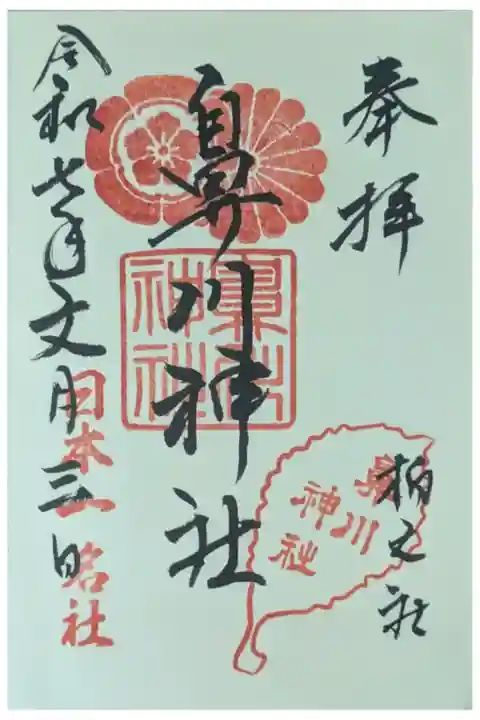 奉拝
柏之社
鼻川神社
鼻川神社
鼻川神社
令和七年文月三日
日本一名社